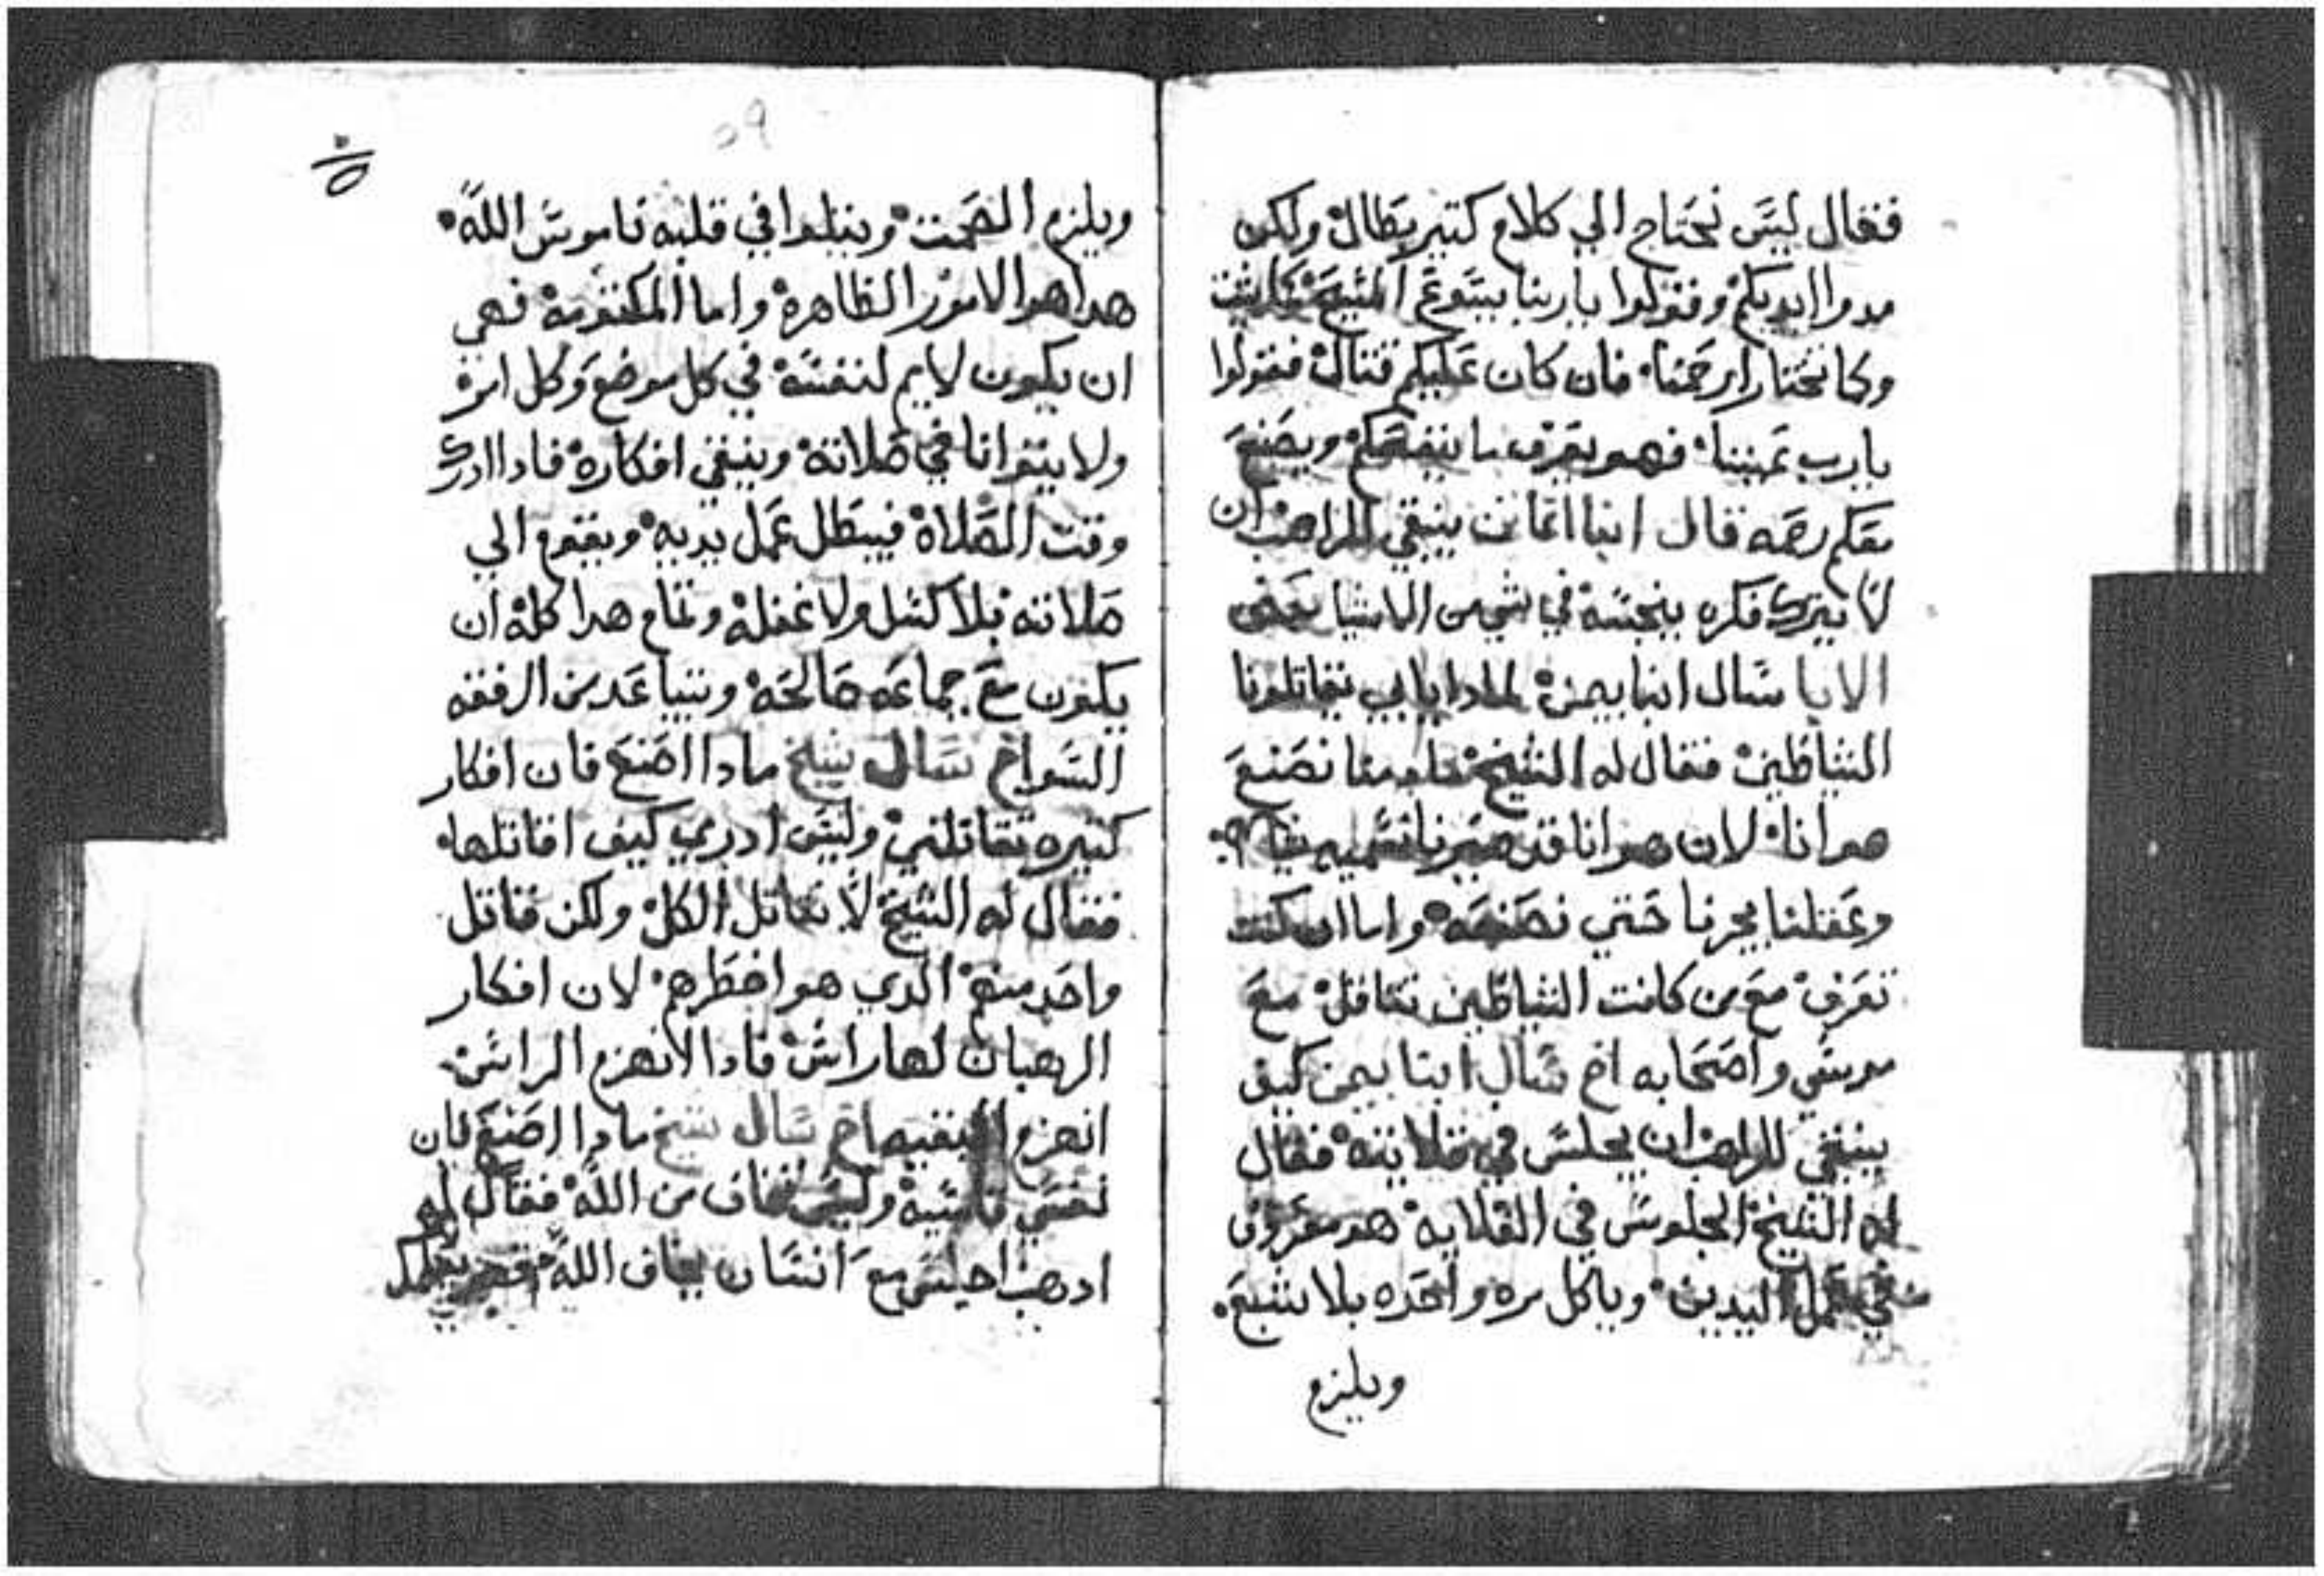 فقال ليس نحتاج الي كلام كتير بطال ولكن
مدوا ايديكم وقولوا يا ربنا يسوع المسيح
وكما تختار ارحمنا فان كان عليكم قتال فقولوا
يا رب فهو يعرف ما ينفعكم ويصنع
معكم رحمه قال انبا ينبغي للراهب ان
لا يترك فكره ينجسه في شي من الاشيا
الابا سال انبا بيمن لمادا يا ابي تقاتلونا
الشياطين فقال له الشيخ نصنع
هوانا لان هوانا قد
وغفلتنا يجرنا حتي نصنعه واما ان كنت
تعرف مع من كانت الشياطين تتاقل مع
موسي واصحابه اخ سال انبا بيمن كيف
ينبغي للراهب ان يجلس في قلايته فقال
له الشيخ الجلوس في القلايه هو معروف
في عمل اليدين وياكل مره واحده بلا شبع
ويلزم
٥٩
ويلزم الصمت ويتلوا في قلبه ناموس الله
هدا هو الامور الظاهره واما المكتومه فهي
ان يكون لايم لنفسه في كل موضع وكل امر
ولا يتوانا في صلاته وينقي افكاره فادا ادرك
وقت الصلاه فيبطل عمل يديه ويقوم الي
صلاته بلا كسل ولا غفله وتمام هدا كله ان
يكون مع جماعه صالحه من الرفقه
السو اخ سال شيخ مادا اصنع فان افكار
كتيره تقاتلني وليس ادري كيف اقاتلها
فقال له الشيخ لا تقاتل الكل ولكن قاتل
واحد منهم الدي هو اخطرهم لان افكار
الرهبان لها راس فادا الانهزم الراس
انهزم البقيه اخ سال شيخ مادا اصنع فان
نفسي قاسيه وليس تخاف من الله فقال له
ادهب اجلس مع انسان يخاف الله